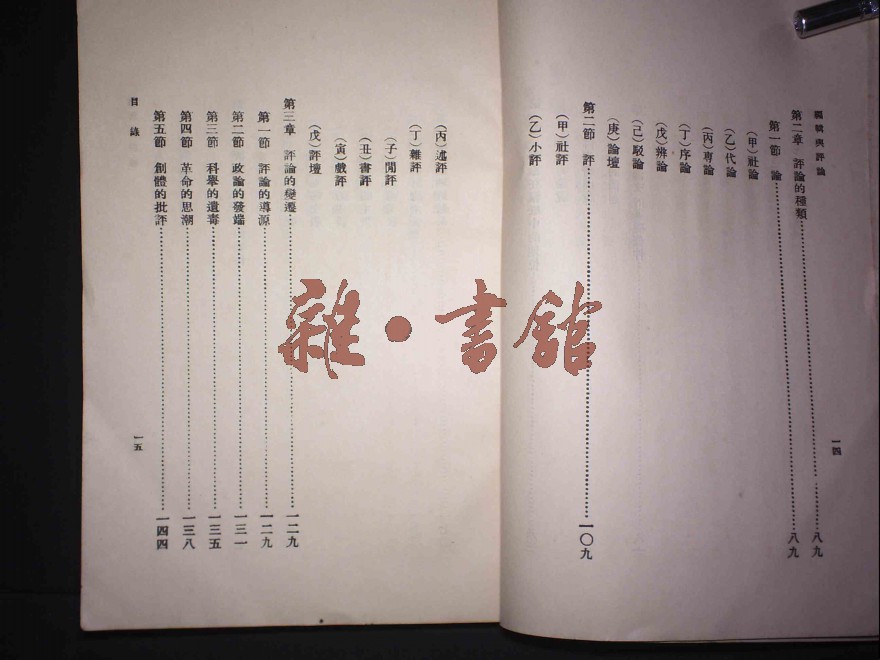 編輯與評論
一四
第二章 評論的種類……………………八九
第一節 論……………………八九
(甲)社論
(乙)代論
(丙)專論
(丁)序論
(戊)辨論
(己)駁論
(庚)論壇
第二節 評……………………一〇九
(甲)社評
(乙)小評
(丙)述評
(丁)雜評
(子)閒評
(丑)書評
(寅)戲評
(戊)評壇
第三章 評論的變遷……………………一二九
第一節 評論的導源……………………一二九
第二節 政論的發端……………………一三一
第三節 科舉的遺毒……………………一三五
第四節 革命的思潮……………………一三八
第五節 創體的批評……………………一四四
目錄
一五
雜·書館